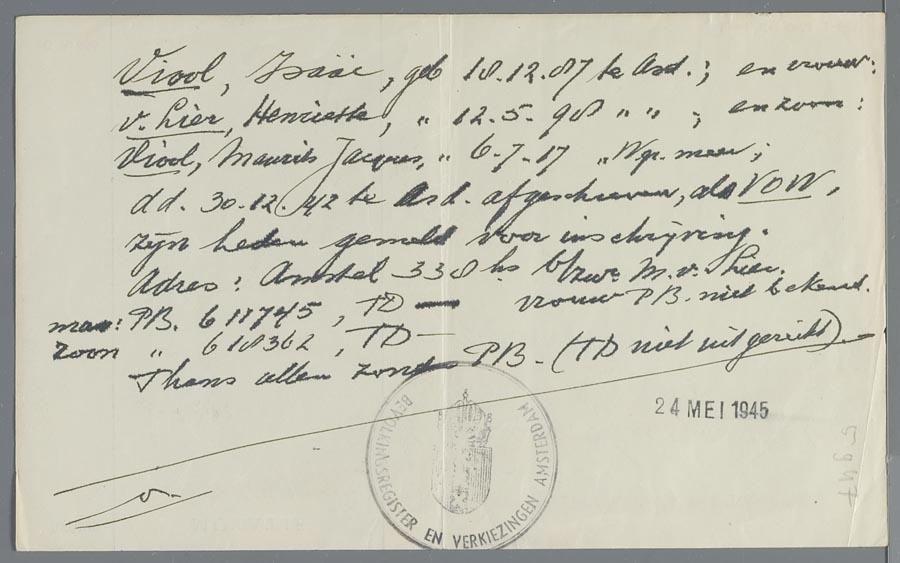 Viool, Isaäc, geb 18.12.87 te Asd.; en vrouw:
v. Lier, Henriette, " 12.5.98 " " ; en zoon:
Viool, Maurits Jacques, " 6-7-17 " Wgr. meer;
dd. 30.12.42 te Asd. afgeschreven, als VOW,
zijn heden gemeld voor inschrijving.
Adres: Amstel 338 hs b/zwr M. v. Lier.
man: PB. 611745, TD — vrouw PB. niet bekend.
zoon " 618362, TD —
Thans allen zonder PB - (TD niet uitgereikt). —
24 MEI 1945
BEVOLKINGSREGISTER EN VERKIEZINGEN AMSTERDAM